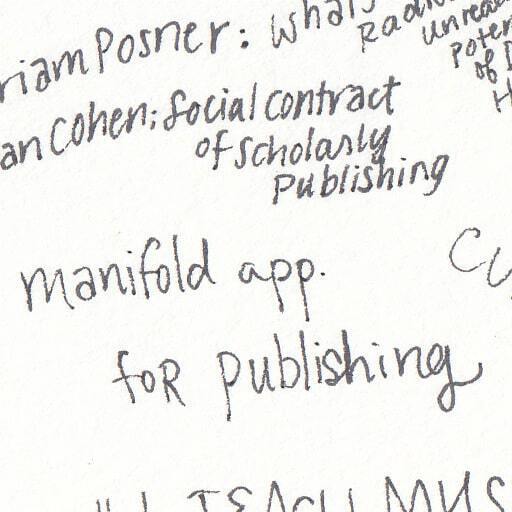 riam Posner: What's
Radi
unrea
poten
of D
H
an Cohen: Social contract
of Scholarly
Publishing
manifold app.
Cu
foR publishing
TEACH MUS